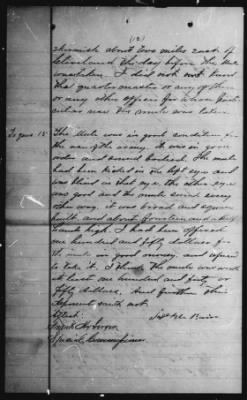 (12)
skirmish about two miles east of
Cleveland the day before the mule
was taken. I did not not hear
that quartermaster or any of them
or any other officer for whose
use the mule was taken
To ques 15 The Mule was in good condition for
the use of the army. It was in good
order and sound footed. The mule
had been kicked in the left eye and
was blind in that eye. the other eye
was good and the mule sound every
other way. it was broad and heavy
built and about fourteen and a half
hands high I had been offered
one hundred and fifty dollars for
the mule in good money, and refused
to take it. I think the mule was worth
at least one hundred and forty
fifty dollars. And further this
deponent saith not.
Attest:
Special Commissioner